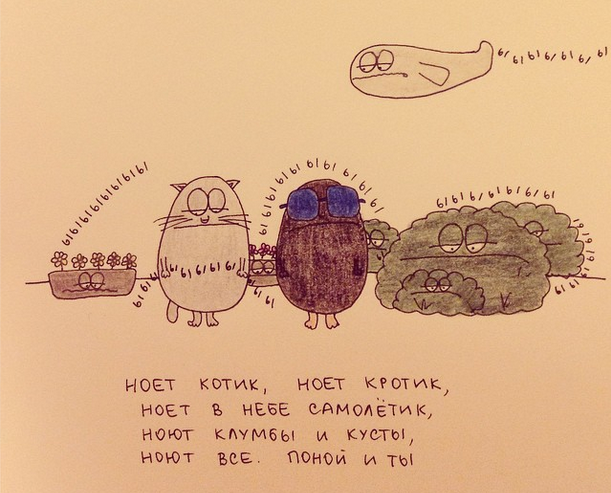 ы ы ы ы ы ы
ыыыыыыыы
ыыыыыыыыы
ыыыыыыы
ы ы ы ы ы
ыыыы
ыыы
ыы
ыыы
НОЕТ КОТИК, НОЕТ КРОТИК,
НОЕТ В НЕБЕ САМОЛЁТИК,
НОЮТ КЛУМБЫ И КУСТЫ,
НОЮТ ВСЕ. ПОНОЙ И ТЫ